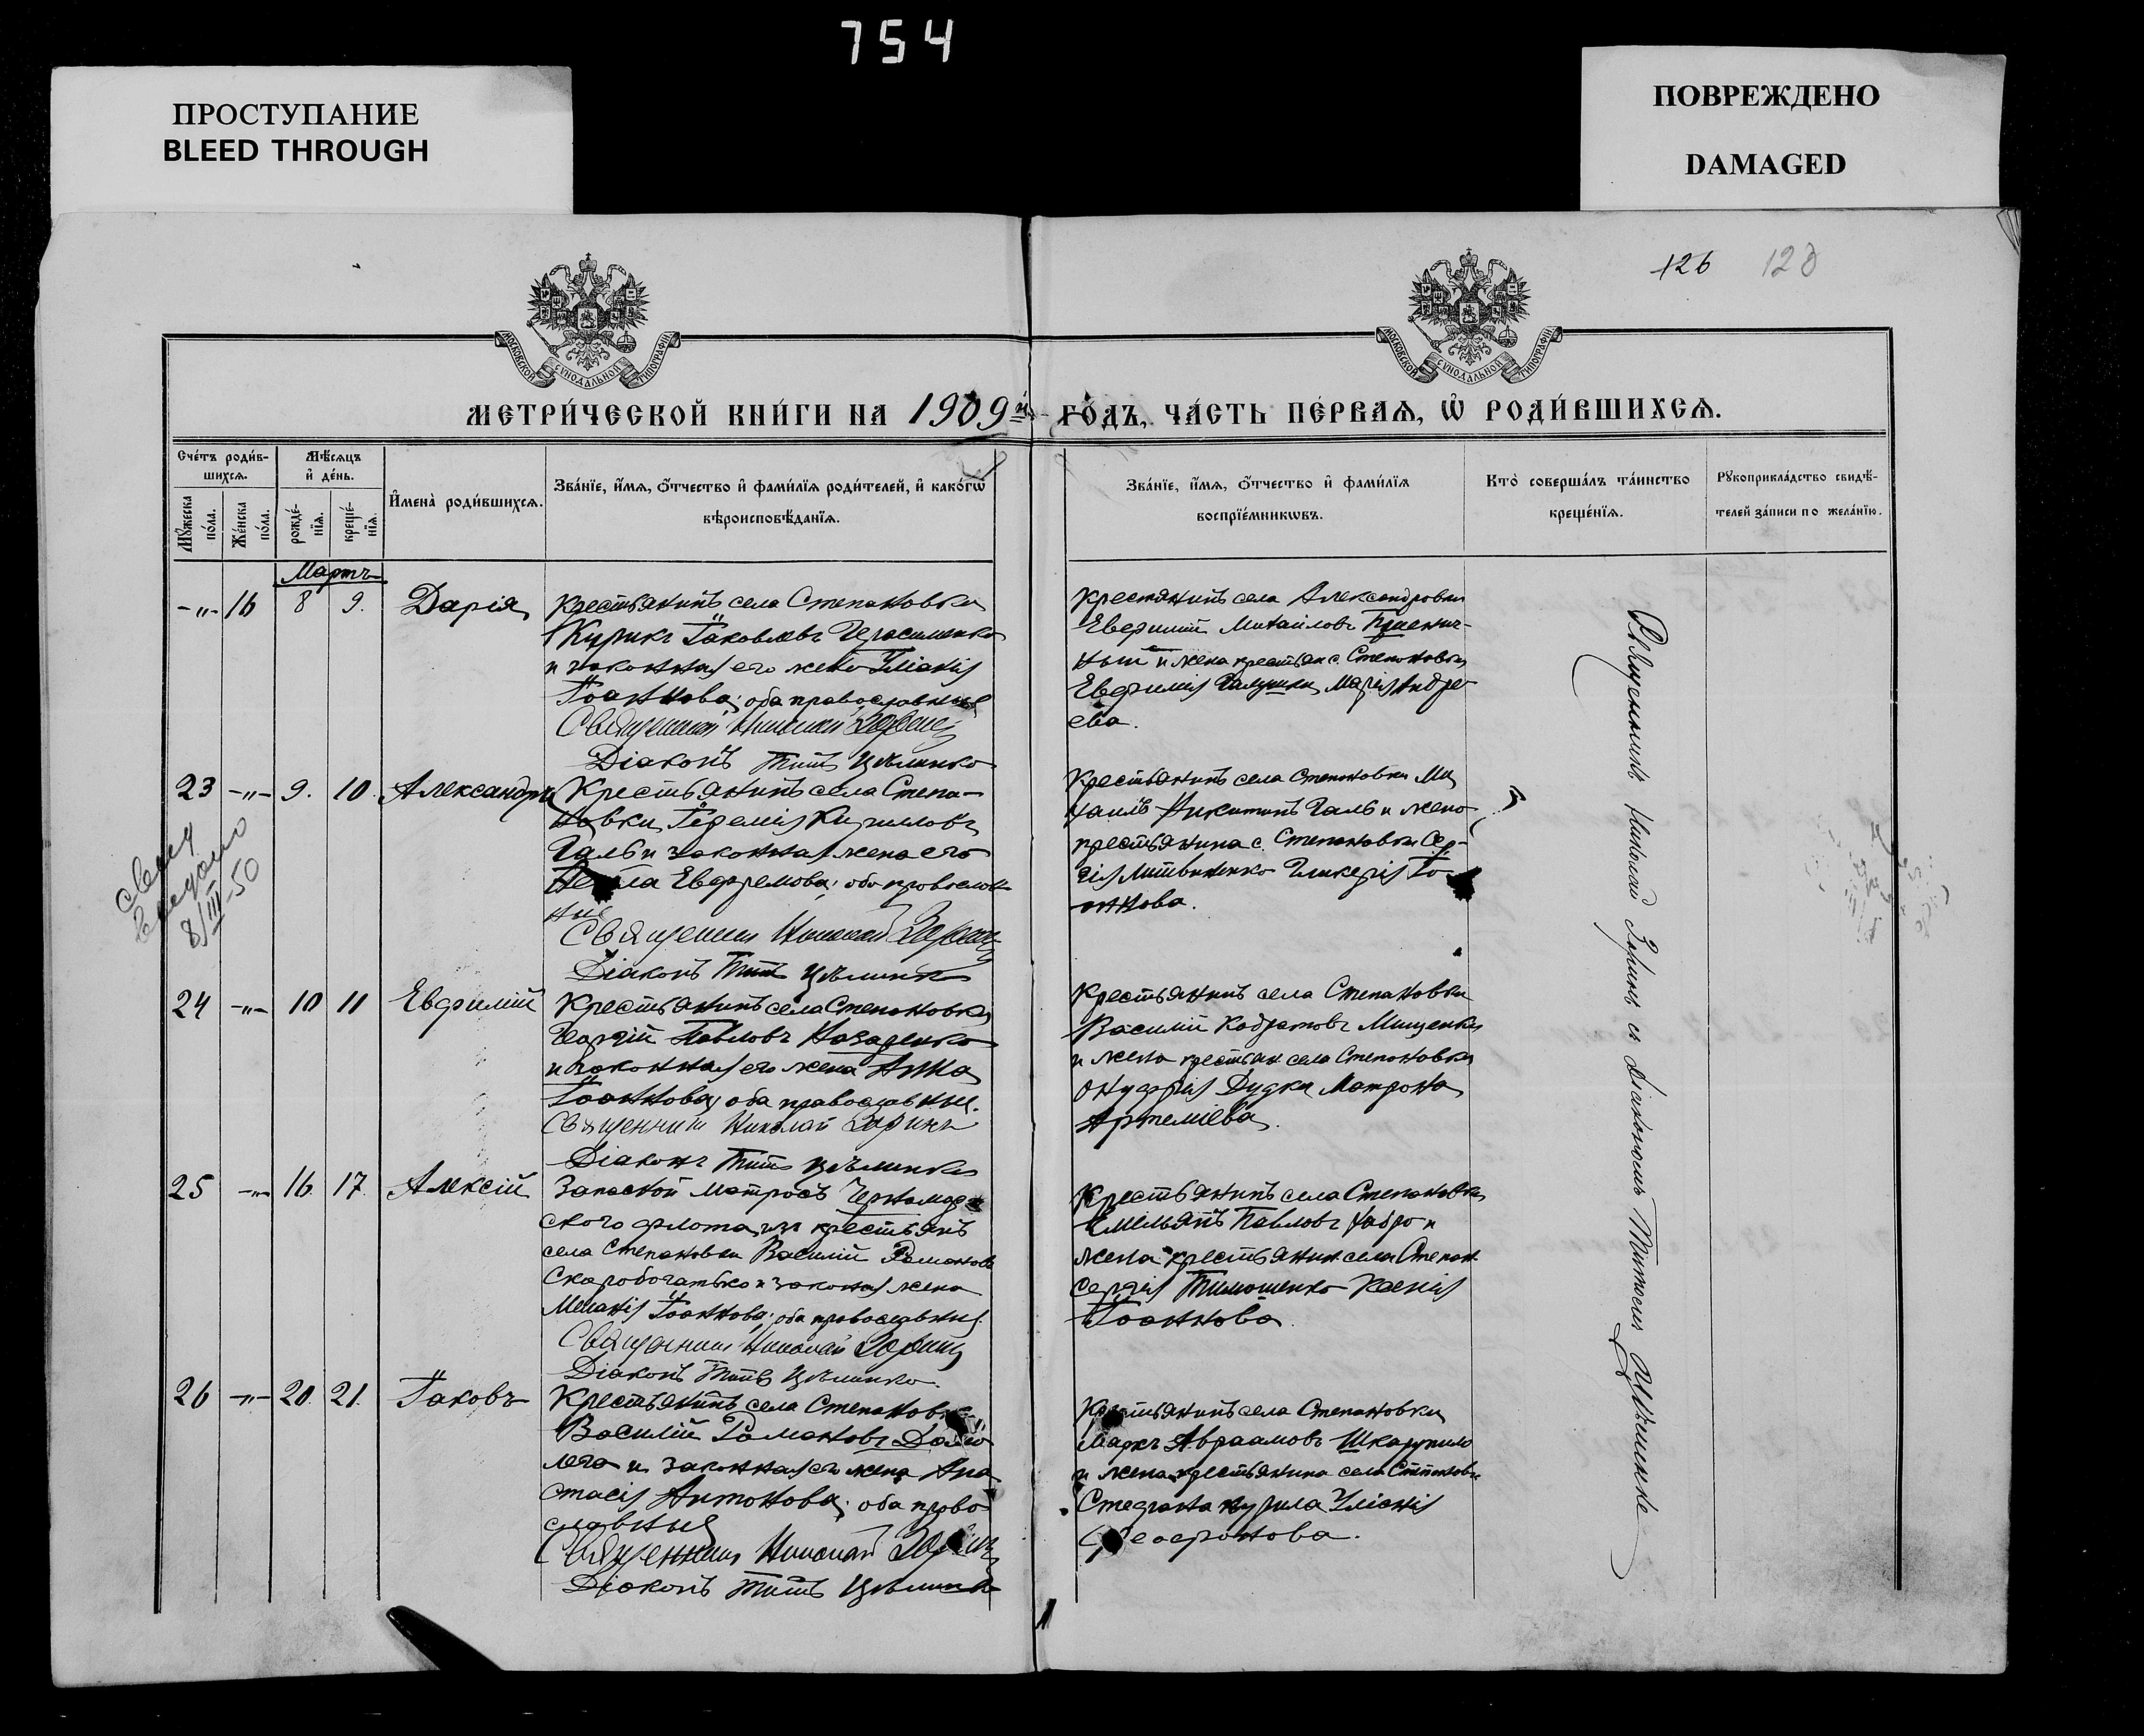 754
ПРОСТУПАНИЕ
BLEED THROUGH
ПОВРЕЖДЕНО
DAMAGED
126 128
МОСКОВСКОЙ СУНОДАЛЬНОЙ ТИПОГРАФІИ
МОСКОВСКОЙ СУНОДАЛЬНОЙ ТИПОГРАФІИ
МЕТРИ́ЧЕСКОЙ КНИ́ГИ НА 1909й ГО́ДЪ, ЧА́СТЬ ПЕ́РВАѦ, Ѡ҆ РОДИ́ВШИХСѦ.
Сче́тъ роди́в-
шихсѧ.
Мꙋ́жеска по́ла.
Же́нска по́ла.
Мѣ́сѧцъ
и҆ де́нь.
рожде́-нїѧ.
креще́-нїѧ.
И҆мена̀ роди́вшихсѧ.
Зва́нїе, и҆́мѧ, ѻ҆́тчество и҆ фами́лїѧ роди́телей, и҆ како́гѡ
вѣроисповѣ́данїѧ.
Зва́нїе, и҆́мѧ, ѻ҆́тчество и҆ фами́лїѧ
воспрїе́мникѡвъ.
Кто̀ соверша́лъ та́инство
креще́нїѧ.
Рꙋкоприкла́дство свидѣ́-
телей за́писи по жела́нїю.
Мартъ
-"- 16 8 9. Дарія
Крестьянинъ села Степановки
Кирикъ Іаковлевъ Герасименко
и законная его жена Уліанія
Іоаннова; оба православные
Священникъ Николай Заринъ
Діаконъ Титъ Цѣлинко
Крестянинъ села Александровки
Евфимій Михаиловъ Пшенич-
ный и жена крестьян с. Степановки
Евфимія Галушки Марія Андре
ева.
23 -"- 9. 10. Александръ
Крестьянинъ села Степа-
новки Іеремія Кирилловъ
Галь и законная жена его
Евфремова; оба православ
ные
Священник Николай Заринъ
Діаконъ Титъ Цѣлинко
Крестьянинъ села Степановки Ми
хаилъ Никитинъ Галь и жена
крестьянина с. Степановки Сер-
гія Литвиненко Гликерія Іо
аннова.
8/III-50
24 -"- 10 11 Евфимій
Крестьянинъ села Степановки
Георгій Павловъ Назаренко
и законная его жена Анна
Іоаннова; оба православные.
Священник Николай Заринъ
Діаконъ Титъ Цѣлинко
Крестьянинъ села Степановки
Василій Кодратовъ Мищенко
и жена крестьян. села Степановки
Онуфрія Дудки Матрона
Артеміева.
25 -"- 16. 17. Алексій
Запасной матросъ Черномор
ского флота, изъ крестьянъ
села Степановки Василій Романовъ
Скоробогатько и законная жена
Меланія Іоаннова; оба православные.
Священник Николай Заринъ
Діаконъ Титъ Цѣлинко.
Крестьянинъ села Степановки
Емельянъ Павловъ и
жена крестьянин села Степан.
Сергія Тимошенко Ксенія
Іоаннова.
26 -"- 20. 21. Іаковъ
Крестьянинъ села Степановки
Василій Романовъ
и законная его жена Ана
стасія Антонова; оба право
славные
Священник Николай Заринъ
Діаконъ Титъ Цѣлинко
Крестьянинъ села Степановки
Маркъ Авраамовъ Шкарупило
и жена крестьянина села Степановки
Стефана Курила Уліанія
Феофанова.
Священникъ Николай Заринъ съ діакономъ Титомъ Цѣлинко